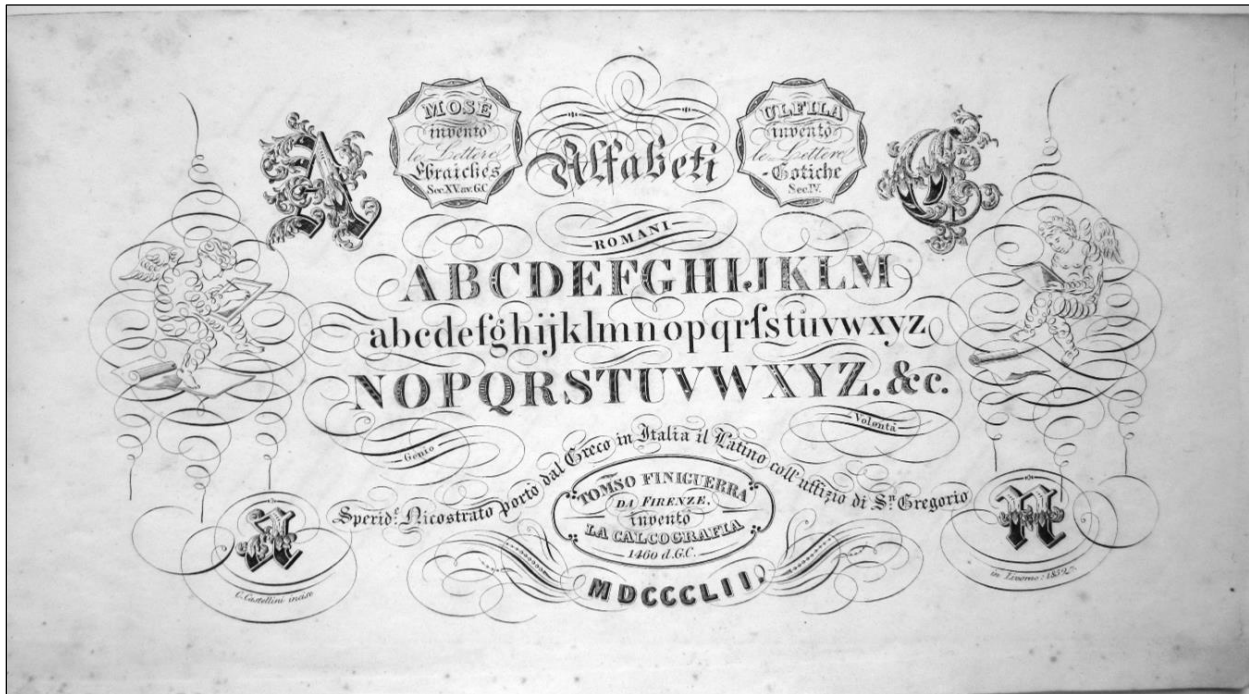 A
MOSÈ
inventò
le Lettere
Ebraiches
Sec. XV. av. G.C.
Alfabeti
ULFILA
inventò
le Lettere
-Gotiche
Sec. IV.
C
ROMANI
ABCDEFGHIJKLM
abcdefghijklmnopqrſstuvwxyz
NOPQRSTUVWXYZ. &c.
Genio
Volontà
Sperid.e Nicostrato portò dal Greco in Italia il Latino coll' uffizio di S.n Gregorio
TOMSO FINIGUERRA
DA FIRENZE,
inventò
LA CALCOGRAFIA
1460 d.G.C.
MDCCCLII.
C. Castellini incise
in Livorno: 1852